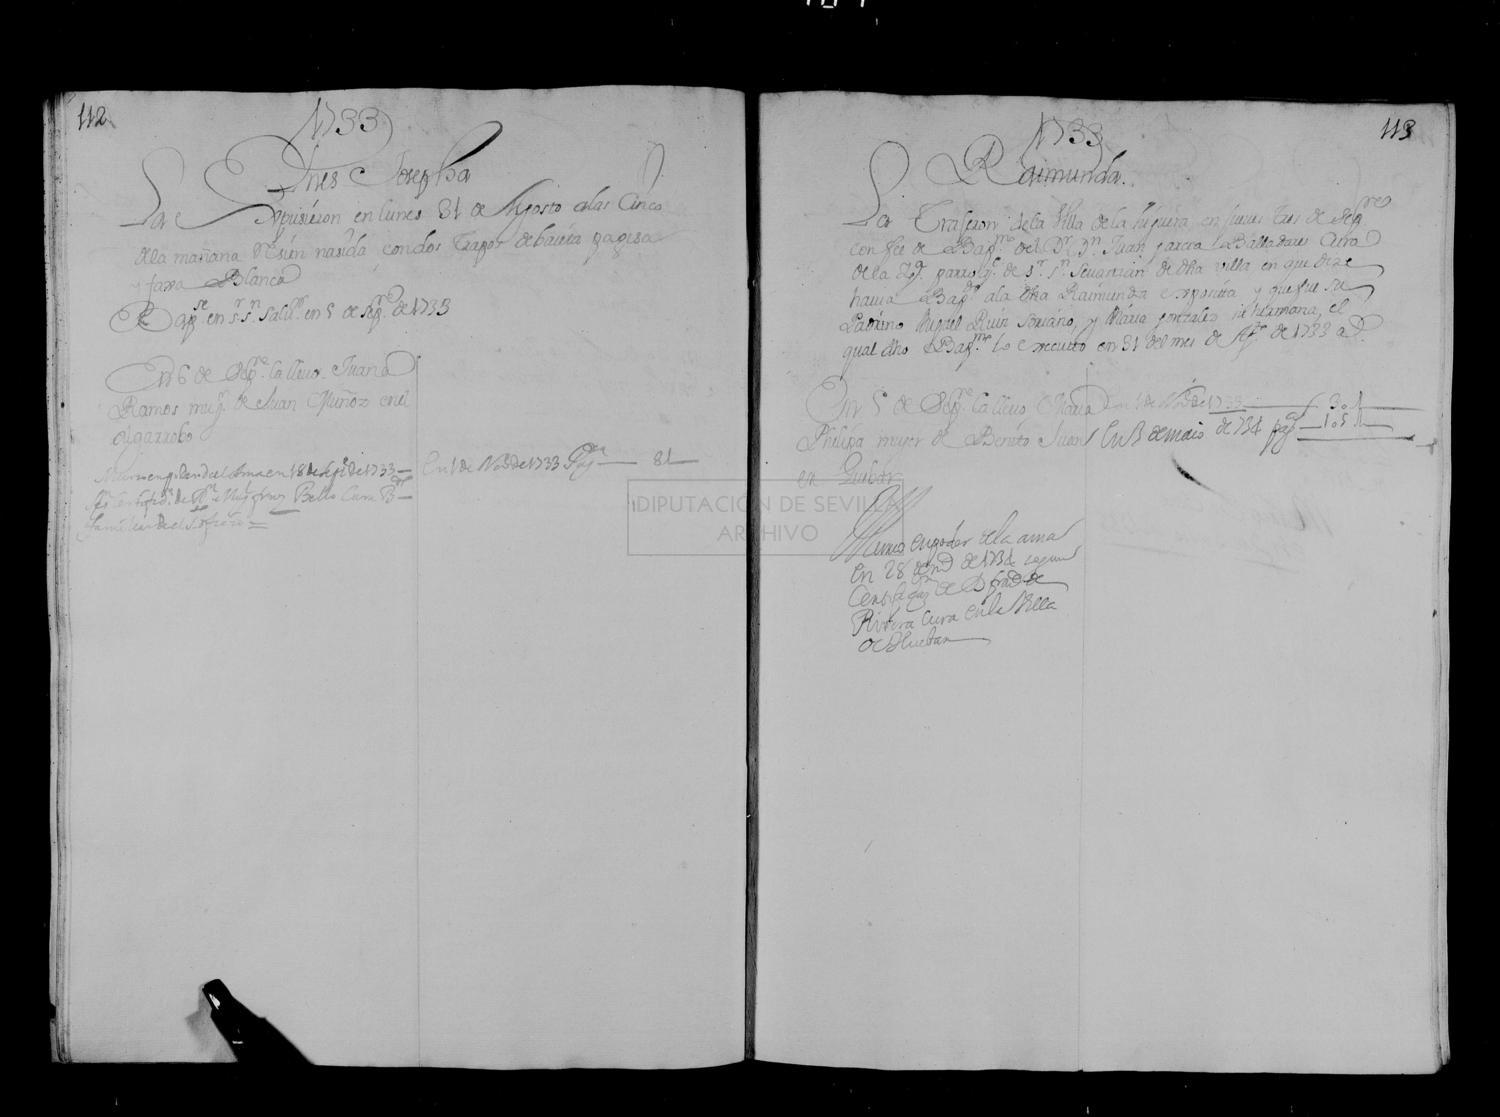 112
1733
Ynes Josepha
La Expusieron en lunes 31 de Agosto a las Cinco
de la mañana Resien nasida con dos trapos de baieta pagisa
y faxa Blanca
Bapse en sr. sn. Salvr. en 5 de Sepre. de 1733
En 6 de Sepre. la llevo Juana
Ramos mugr. de Juan Muñoz en el
algarrobo
Murio en poder del Ama en 18 de Sepe. de 1733
En 1 de Nove. de 1733 Pag 8 1
Bello Cura
familiar del Sto. ofisio
113
1733
Raimunda
La Trageron de la Villa de la higuera, en jueves tres de Sepre
con fee de Bapmo. del Dr. Dn. Juan garcia Balladares Cura
de la Yga. parroql. de sr. sn. Sevastian de dha villa en que dize
havia Bapdo. a la dha Raimunda exposita y que fue su
Padrino Miguel Ruiz soriano, y Maria gonzales su hermana, el
qual dho Bapmo. lo executo en 31 del mes de Agto. de 1733 a.
En 5 de Sepre. la llevo Maria
Philipa muger de Benito Juan
en Guebar
En 1 de Nove. de 1733 30
En 3 de maio de 734 pag 105
Murio en poder de la ama
en 28 de de 1734 segun
Certificaon. de D. frado. de
Rivera Cura en la Villa
de Huebar
DIPUTACIÓN DE SEVILLA
ARCHIVO